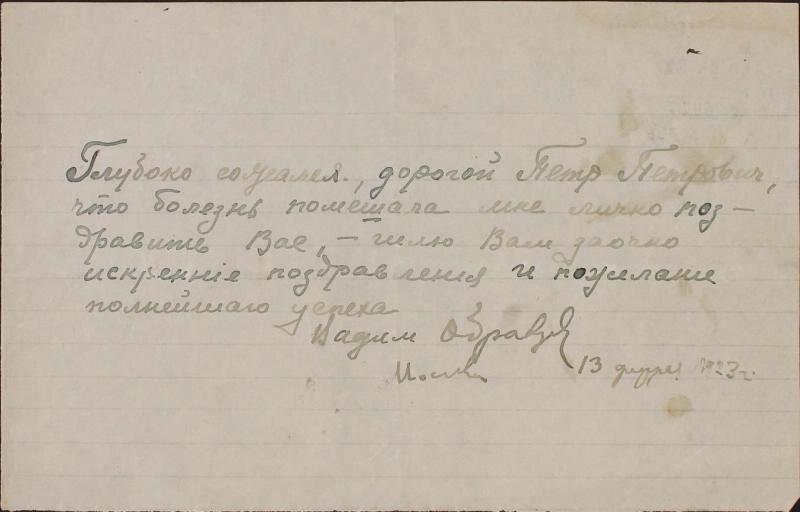 Глубоко сожалея, дорогой Петр Петрович,
что болезнь помешала мне лично поз-
дравить Вас, – шлю Вам заочно
искренніе поздравления и пожелание
полнейшаго успеха
Вадим
Москва 13 1923 г.